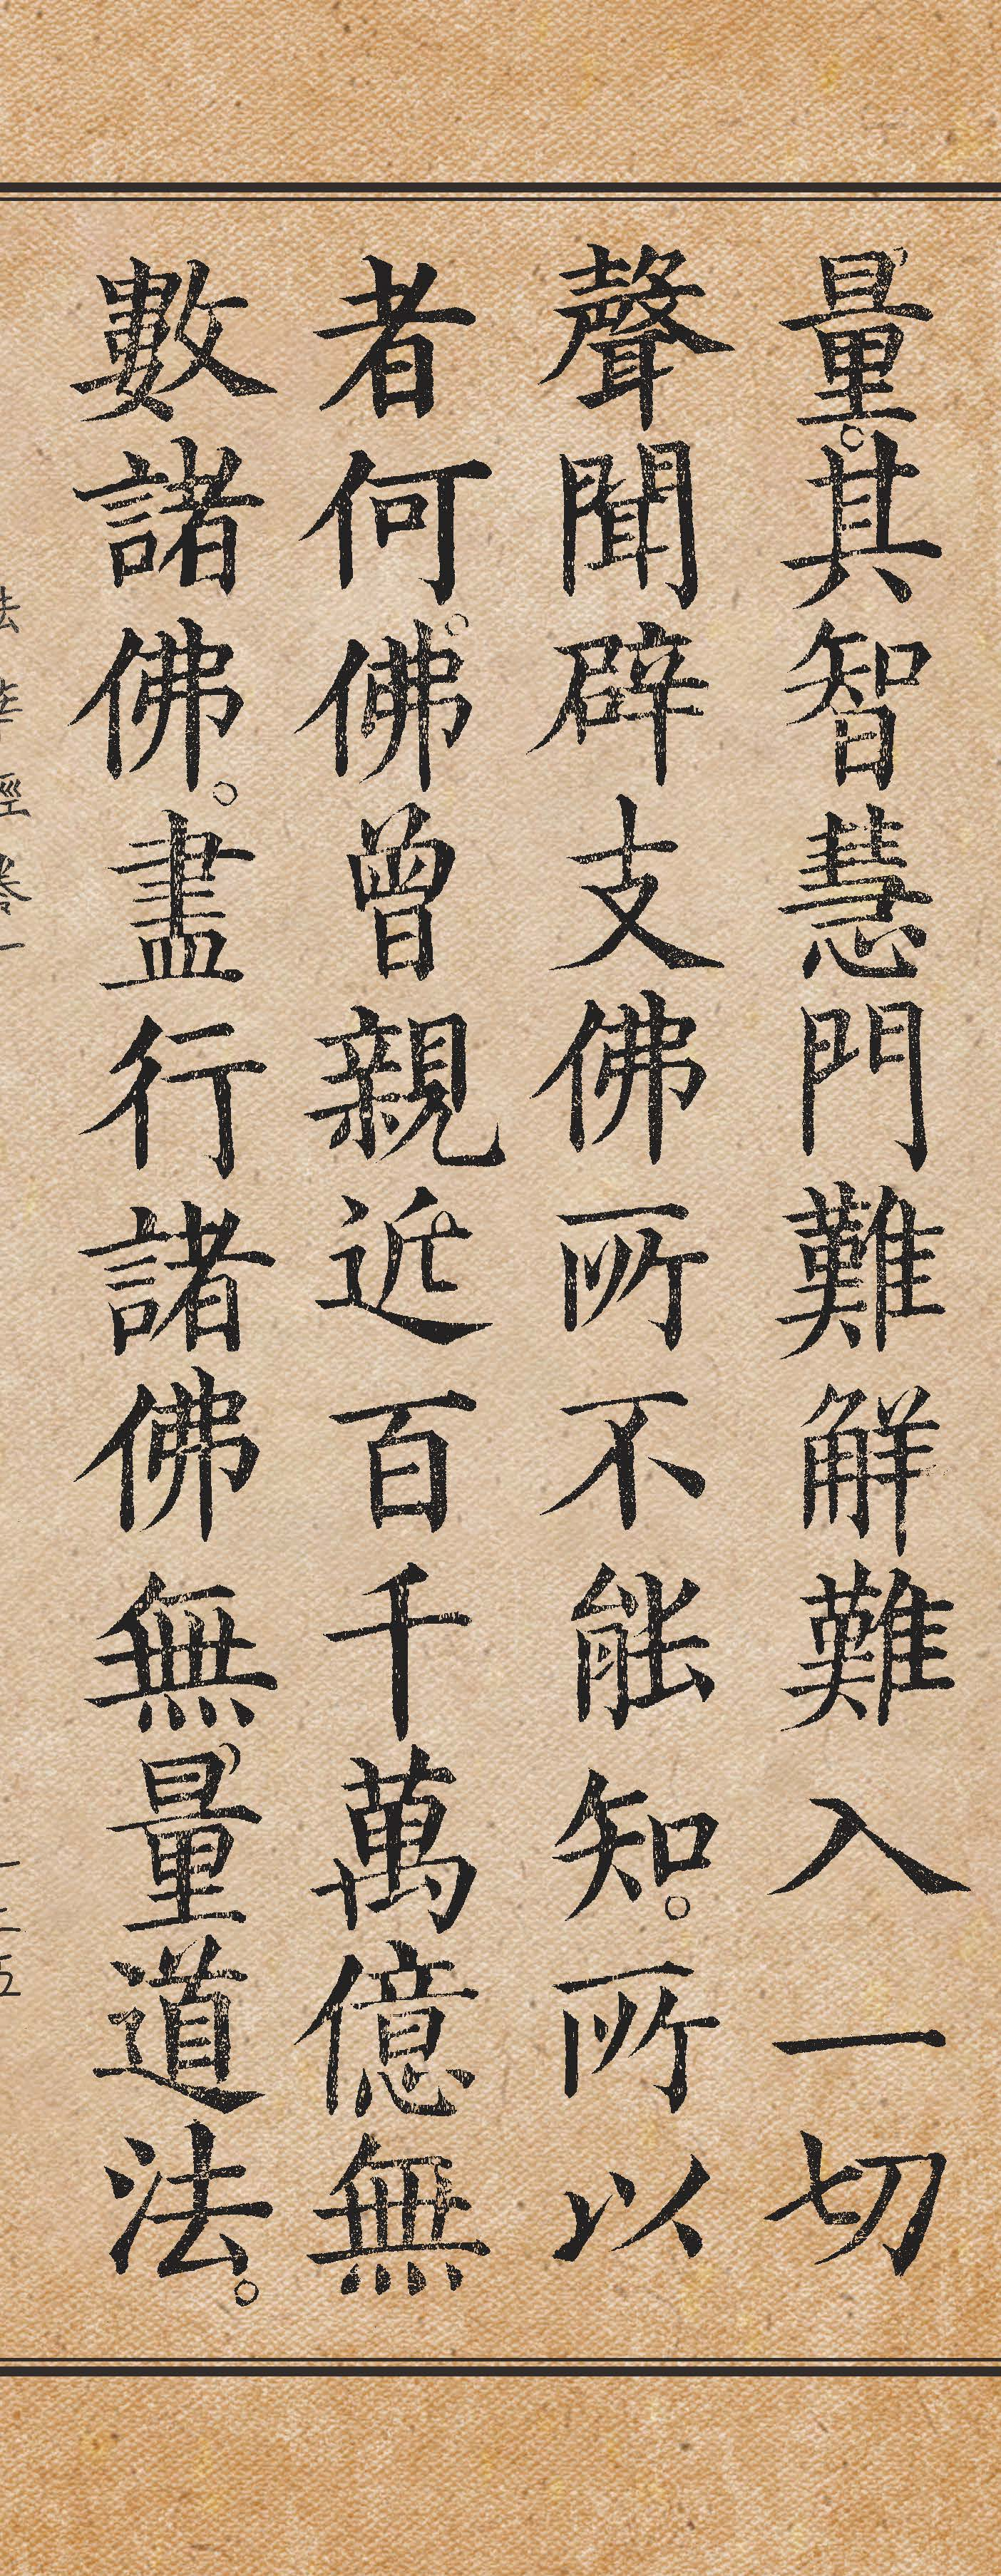 量。其智慧門難解難入一切
聲聞辟支佛所不能知。所以
者何。佛曾親近百千萬億無
數諸佛。盡行諸佛無量道法。
法華經卷一